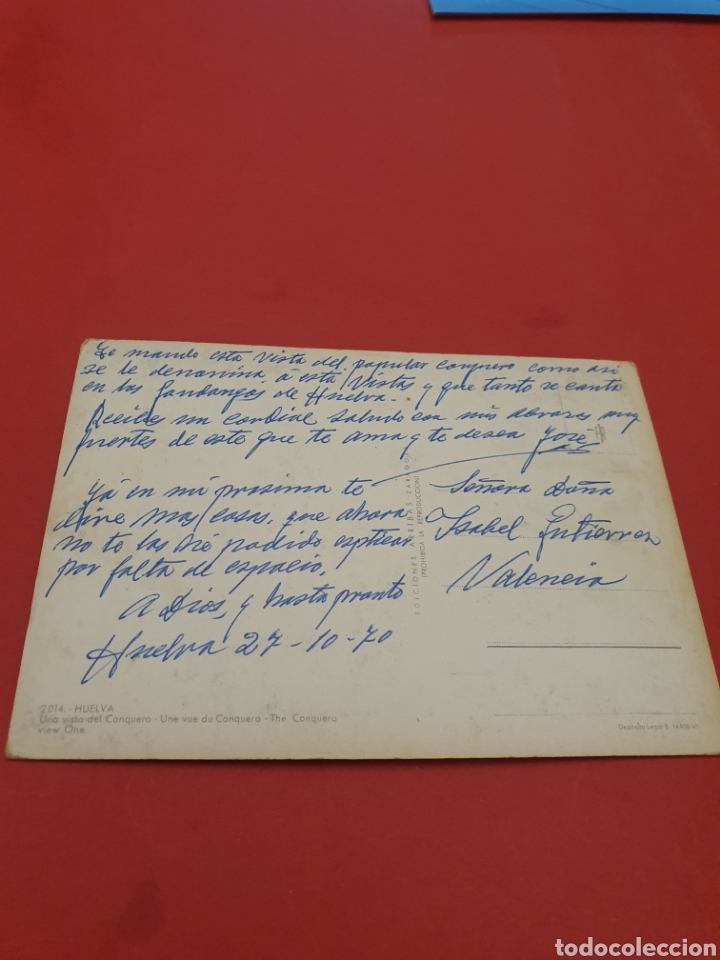 Te mando esta vista del popular conquero como asi
se le denomina, á esta vistas y que tanto se canta
en los fandangos de Huelva.
Recibes un cordial saludo con mis abrazos muy
fuertes de este que te ama y te desea José
Yá en mi prosima te
dire mas cosas, que ahora
no te las hé podido esplicar
por falta de espacio.
A Dios, y hasta pronto
Huelva 27-10-70
EDICIONES ARRIBAS ZARAGOZA
(PROHIBIDA LA REPRODUCCION)
Señora Doña
Isabel Gutierrez
Valencia
2.014.-HUELVA
Una vista del Conquero - Une vue du Conquero - The Conquero
view One
Depósito Legal
todocoleccion